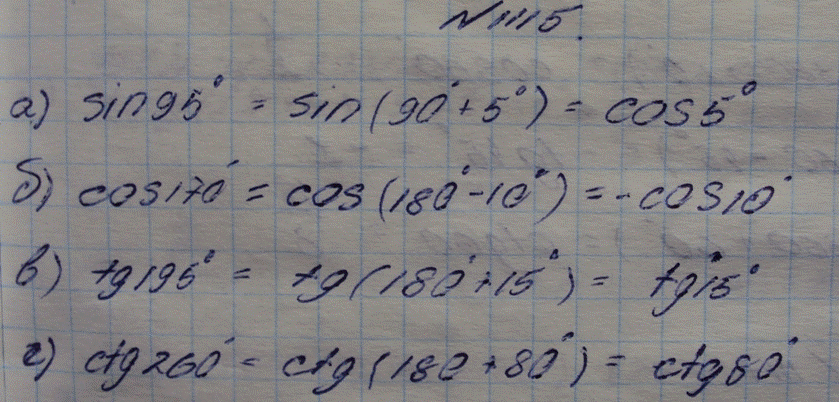 N 1115.
а) sin95° = sin(90°+5°) = cos5°
б) cos170° = cos(180°-10°) = -cos10°
в) tg195° = tg(180°+15°) = tg15°
г) ctg260° = ctg(180+80°) = ctg80°